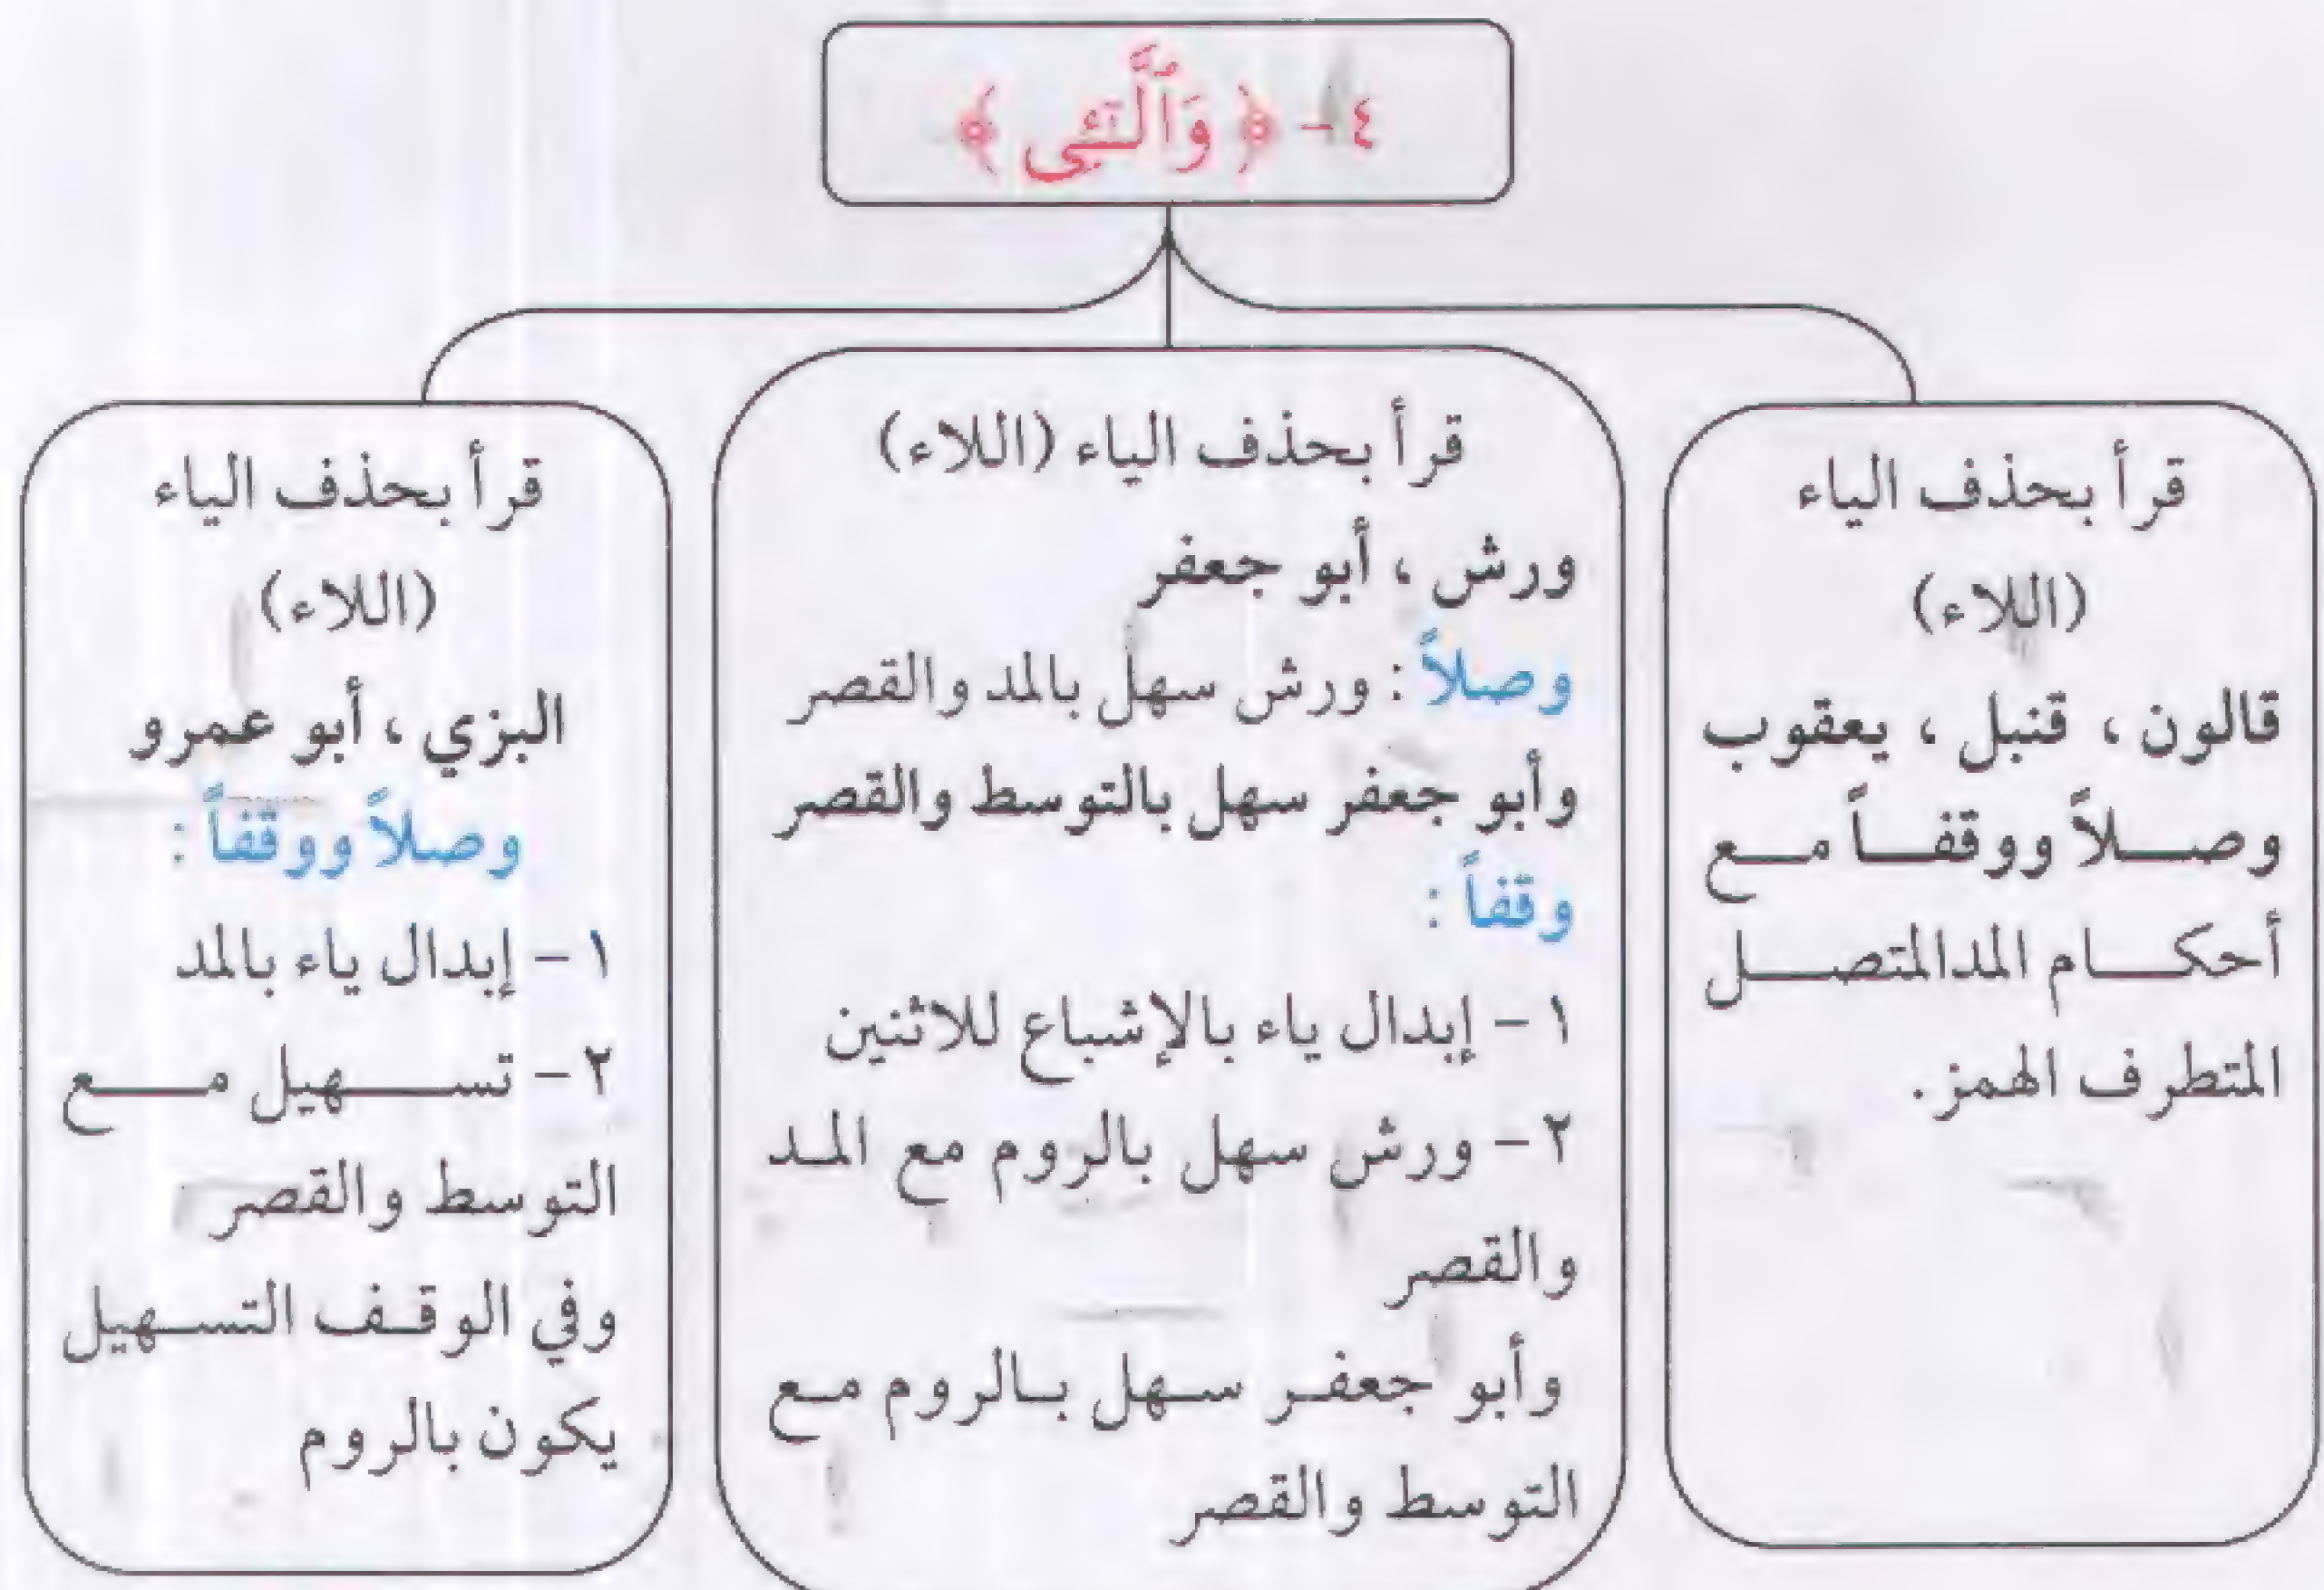 ٤- ﴿ وَٱلَّـٰٓـِٔى ﴾
قرأ بحذف الياء
(اللاء)
قالون ، قنبل ، يعقوب
وصلاً ووقفاً مع
أحكام المدالمتصل
المتطرف الهمز.
قرأ بحذف الياء (اللاء)
ورش ، أبو جعفر
وصلاً : ورش سهل بالمد والقصر
وأبو جعفر سهل بالتوسط والقصر
وقفاً :
١ - إبدال ياء بالإشباع للاثنين
٢- ورش سهل بالروم مع المد
والقصر
وأبو جعفر سهل بالروم مع
التوسط والقصر
قرأ بحذف الياء
(اللاء)
البزي ، أبو عمرو
وصلاً ووقفاً :
١ - إبدال ياء بالمد
٢- تسهيل مع
التوسط والقصر
وفي الوقف التسهيل
يكون بالروم